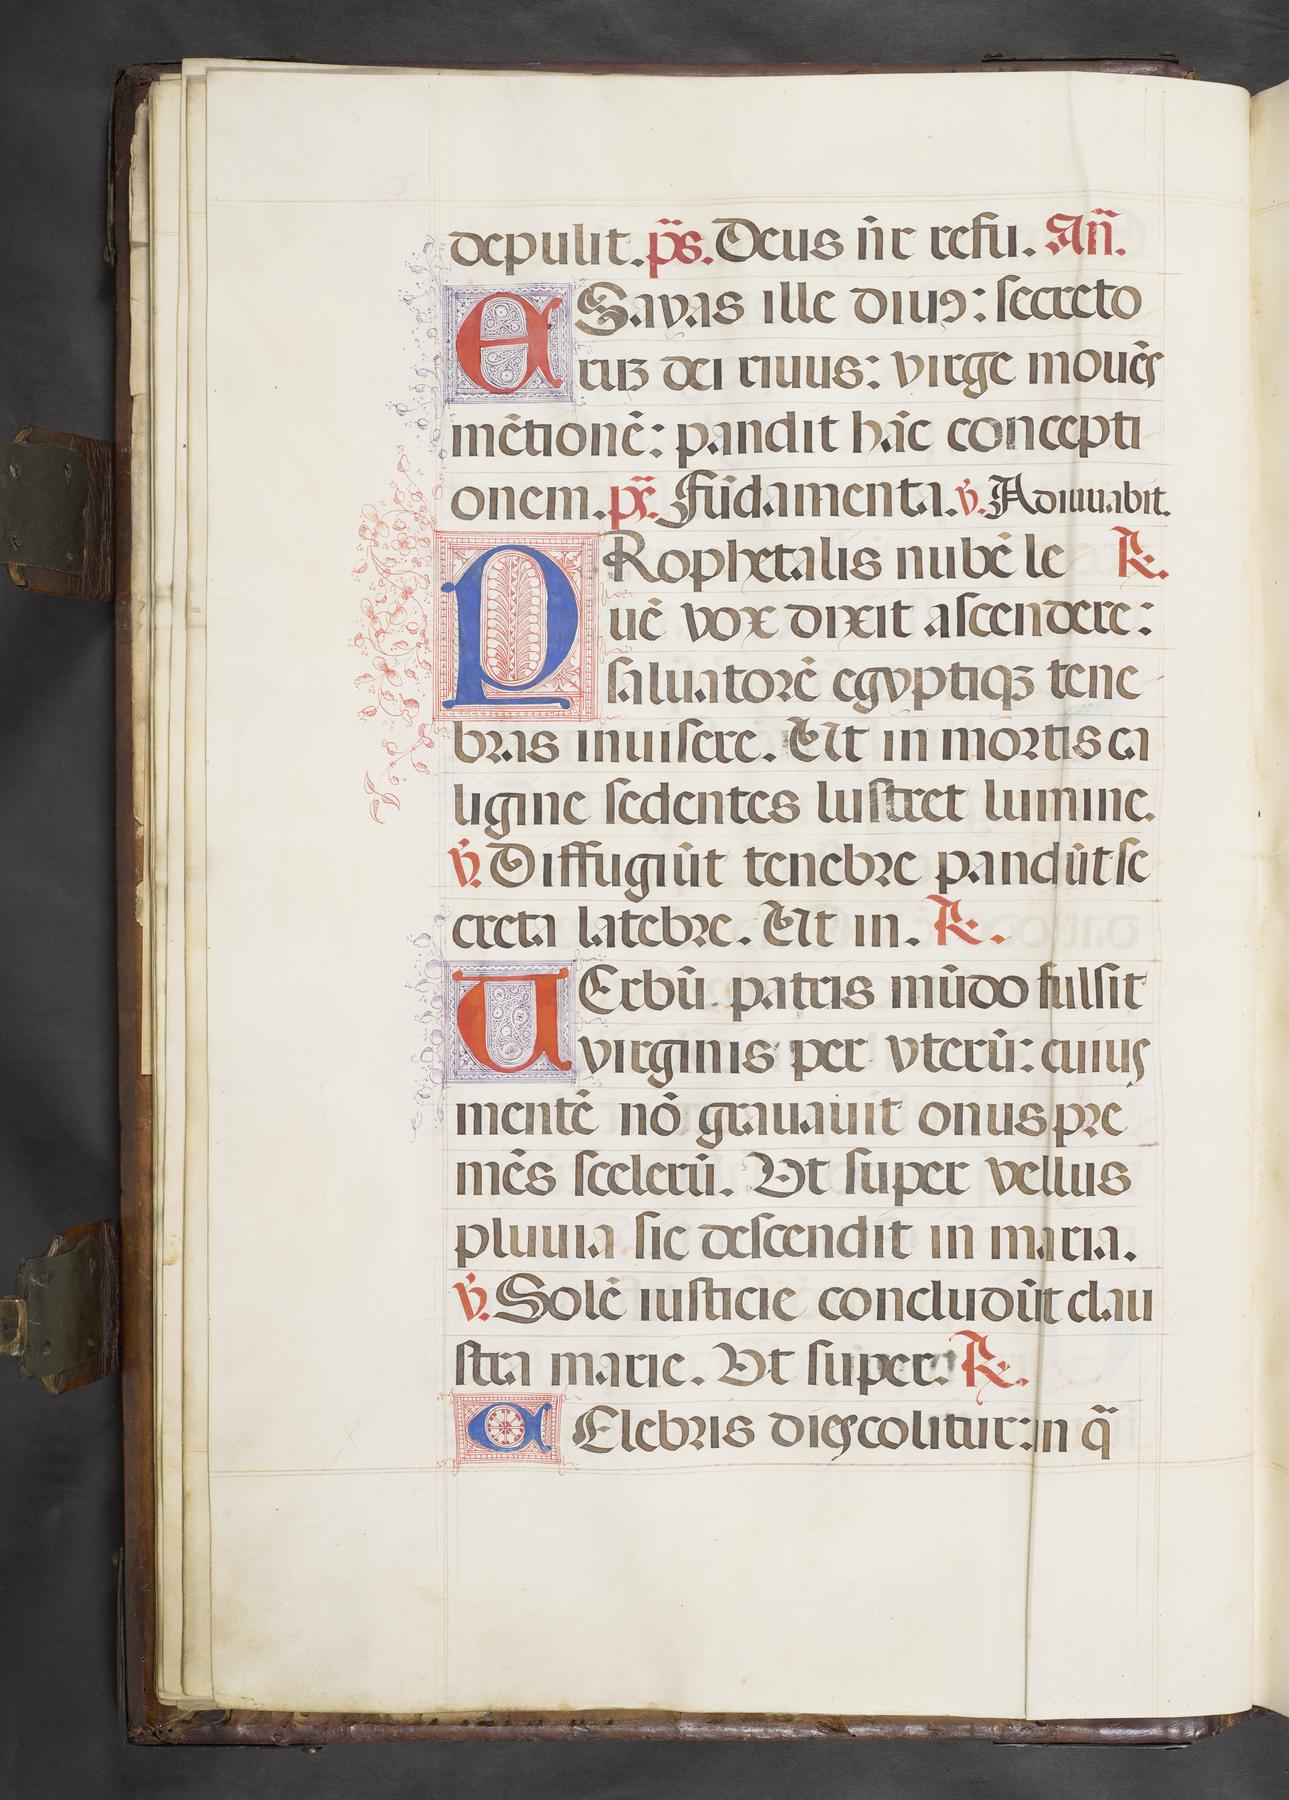 depulit. ps̃. Deus nr̄e refu. Añ.
ESayas ille diuꝰ: secreto
rūz dei riuus: virge mouēs
mētionē: pandit hāc concepti
onem. ps̃. Fūdamenta. v̄. Adiuuabit.
PRophetalis nubē le ℟.
uē vox dixit ascendere:
saluatorē egyptiqꝫ tene
bras inuisere. Et in mortis ca
ligine sedentes lustret lumine.
v̄. Diffugiūt tenebre pandūt se
creta latebre. Et in. ℟.
UErbū patris mūdo fulsit
virginis per vterū: cuius
mentē nō grauauit onus pre
mēs scelerū. Vt super vellus
pluuia sic descendit in maria.
v̄. Solē iusticie concludūt clau
stra marie. Vt super. ℟.
CElebris dies colitur: in q̄